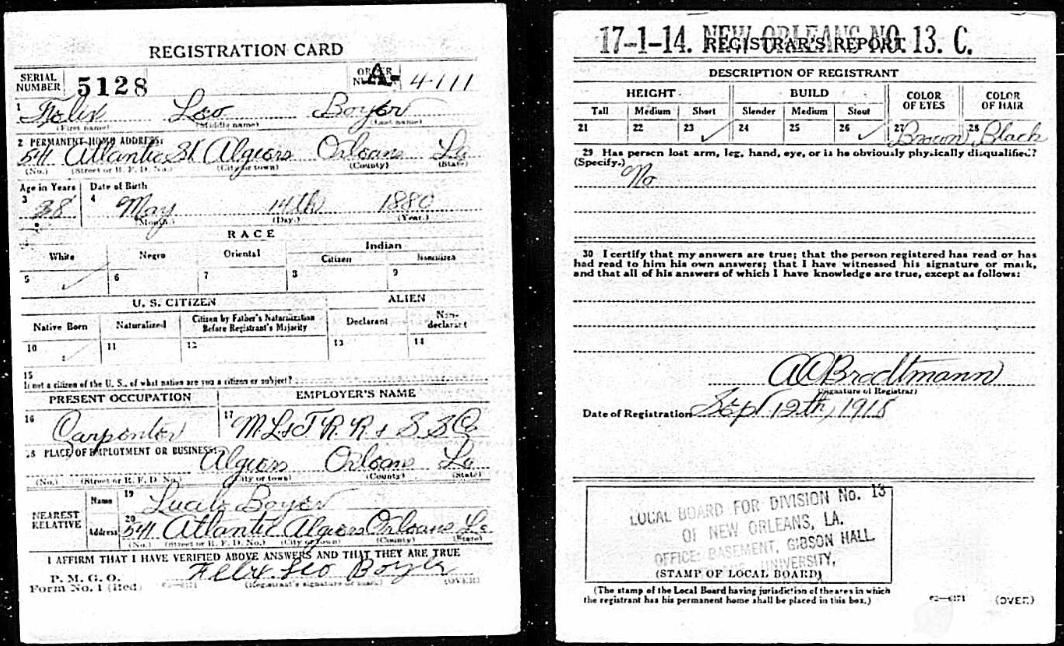 REGISTRATION CARD
SERIAL NUMBER 5128 ORDER NUMBER A- 4111
1 Felix Leo Boyer
(First name) (Middle name) (Last name)
2 PERMANENT HOME ADDRESS:
541 Atlantic St Algiers Orleans La
(No.) (Street or R. F. D. No.) (City or town) (County) (State)
Age in Years Date of Birth
3 38 4 May 14th 1880
(Month.) (Day.) (Year.)
RACE
White Negro Oriental Indian
Citizen Noncitizen
5 ✓ 6 7 8 9
U. S. CITIZEN ALIEN
Native Born Naturalized Citizen by Father's Naturalization Before Registrant's Majority Declarant Non-declarant
10 ✓ 11 12 13 14
15
If not a citizen of the U. S., of what nation are you a citizen or subject?
PRESENT OCCUPATION EMPLOYER'S NAME
16 Carpenter 17 M L & T R. R & S S Co
18 PLACE OF EMPLOYMENT OR BUSINESS:
Algiers Orleans La
(No.) (Street or R. F. D. No.) (City or town) (County) (State)
NEAREST RELATIVE Name 19 Boyer
Address 20 541 Atlantic Algiers Orleans La
(No.) (Street or R. F. D. No.) (City or town) (County) (State)
I AFFIRM THAT I HAVE VERIFIED ABOVE ANSWERS AND THAT THEY ARE TRUE
P. M. G. O.
Form No. 1 (Red) Felix Leo Boyer
(Registrant's signature or mark) (OVER)
17-1-14. NEW ORLEANS NO. 13. C.
REGISTRAR'S REPORT
DESCRIPTION OF REGISTRANT
HEIGHT BUILD COLOR OF EYES COLOR OF HAIR
Tall Medium Short Slender Medium Stout
21 22 23 ✓ 24 25 26 ✓ 27 Brown 28 Black
29 Has person lost arm, leg, hand, eye, or is he obviously physically disqualified?
(Specify.) No
30 I certify that my answers are true; that the person registered has read or has
had read to him his own answers; that I have witnessed his signature or mark,
and that all of his answers of which I have knowledge are true, except as follows:
A A Brodtmann
(Signature of Registrar)
Date of Registration Sept 12th, 1918
LOCAL BOARD FOR DIVISION No. 13
OF NEW ORLEANS, LA.
OFFICE: BASEMENT, GIBSON HALL
UNIVERSITY,
(STAMP OF LOCAL BOARD)
(The stamp of the Local Board having jurisdiction of the area in which
the registrant has his permanent home shall be placed in this box.)
(OVER)